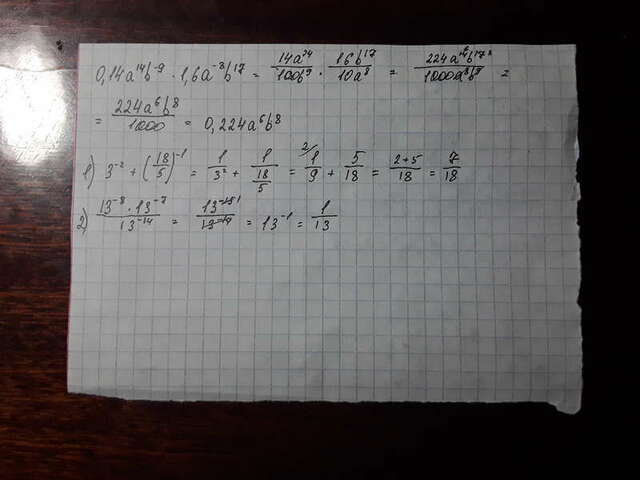 0,14a¹⁴b⁻⁹ · 1,6a⁻⁸b¹⁷ = 14a¹⁴/100b⁹ · 16b¹⁷/10a⁸ = 224a¹⁴b¹⁷/1000a⁸b⁹ =
= 224a⁶b⁸/1000 = 0,224a⁶b⁸
1) 3⁻² + (18/5)⁻¹ = 1/3² + 1/(18/5) = ²⁄1/9 + 5/18 = 2+5/18 = 7/18
2) 13⁻⁸ · 13⁻⁷/13⁻¹⁴ = 13⁻¹⁵/13⁻¹⁴ = 13⁻¹ = 1/13